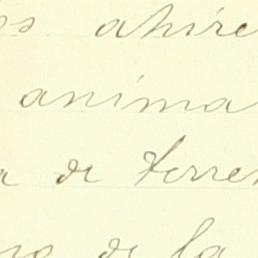 os ahire
anima
a de terre
no de la